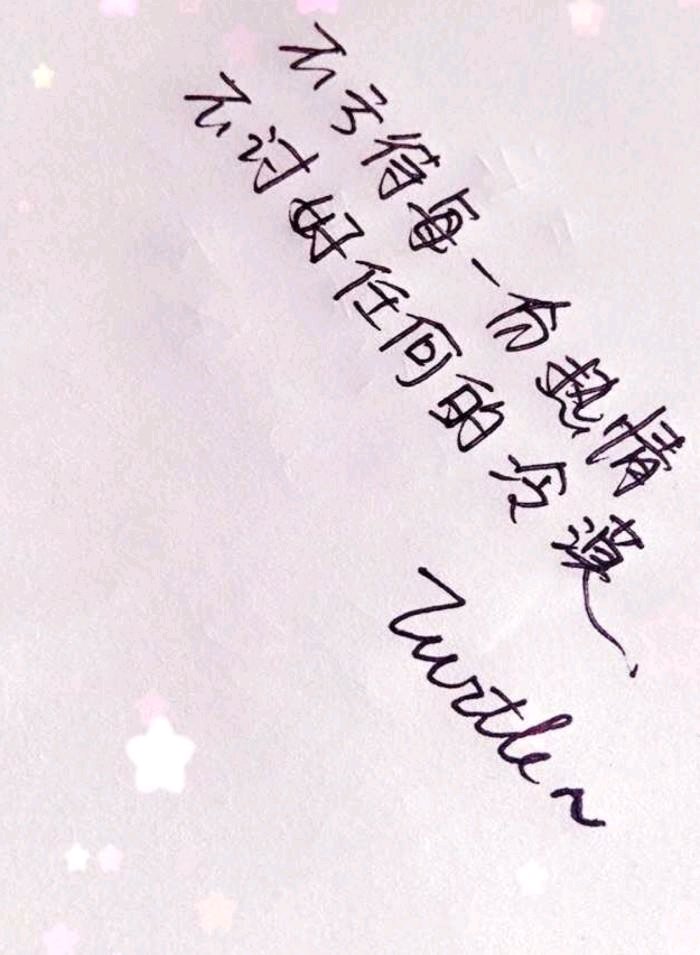 不亏待每一份热情
不讨好任何的冷漠
Turtle~